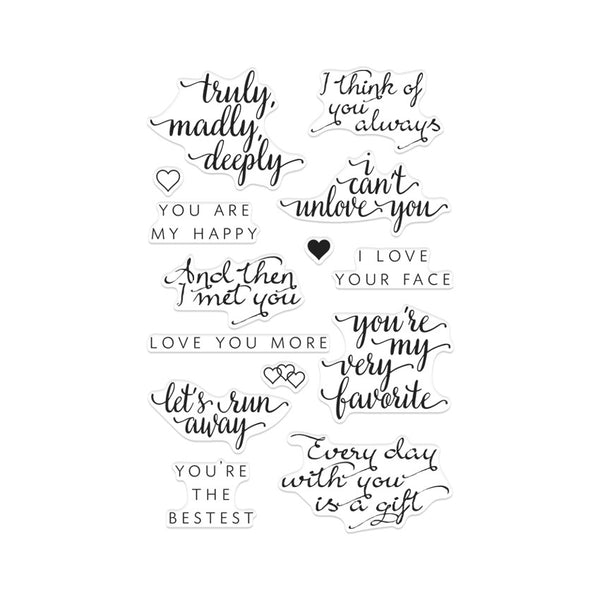 truly,
madly,
deeply
I think of
you
always
i
can't
unlove you
YOU ARE
MY HAPPY
I LOVE
YOUR FACE
And then
I met you
LOVE YOU MORE
you're
my
very
favorite
let's run
away
Every day
with you
is a gift
YOU'RE
THE
BESTEST